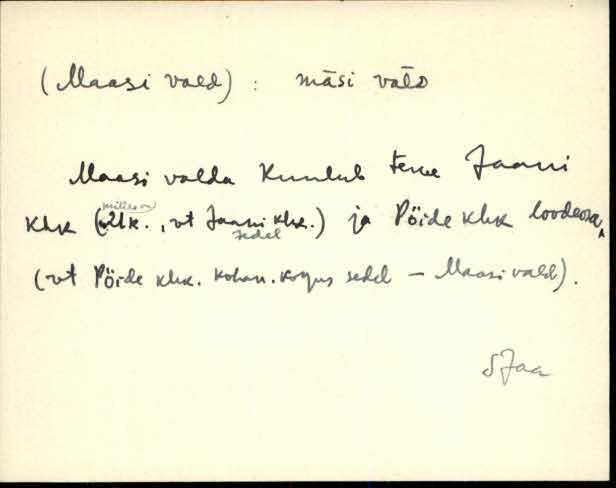 (Maasi vald) : māsi val̄D
Maasi valda kuulub terve Jaani
khk (milles on 21k., vt Jaani khk. sedel) ja Pöide khk loodeosa,
(vt Pöide khk. kohan. kogus sedel – Maasi vald).
SJaa